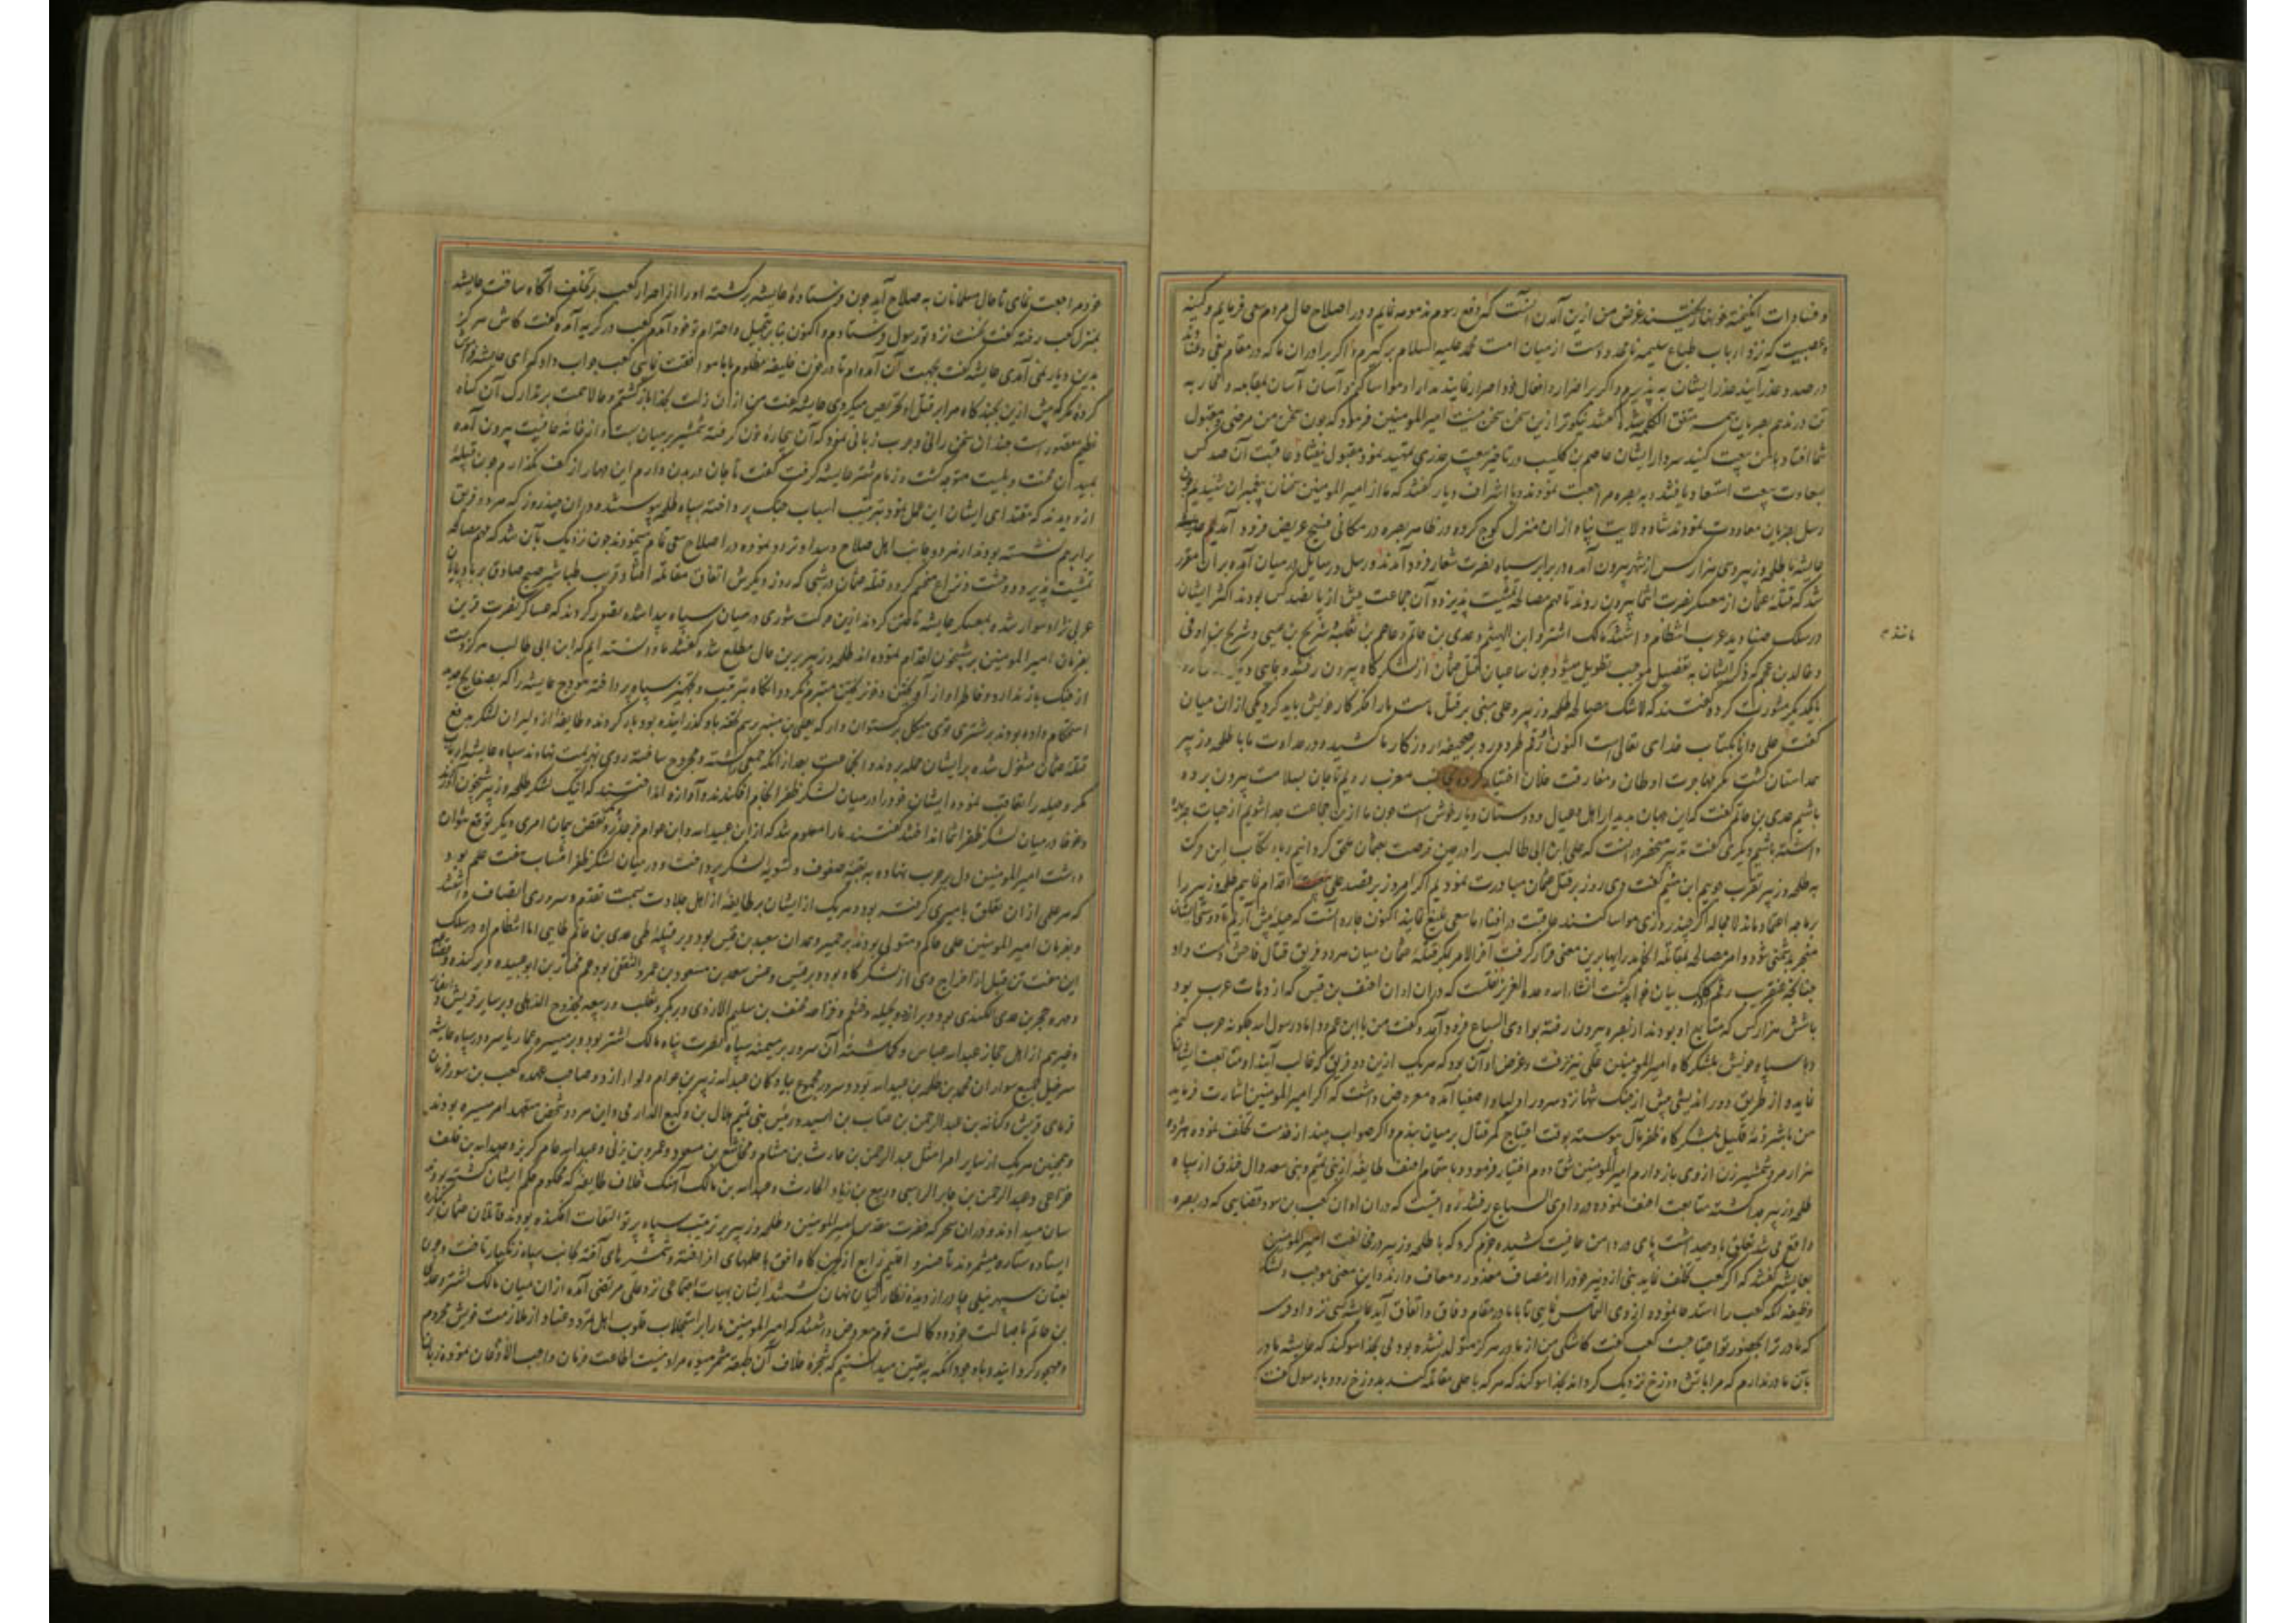 و فساد رات انگیخته خونها ریختند غرض من ازین آمدن آنست که رفع رسوم مذمومه نمایم و در اصلاح حال مردم سعی فرمایم و کینه
و عصبیت که نزد ارباب طباع سلیمه نامحدود است از میان امت محمد علیه السلام برگیرم و اگر برادران ما که در مقام بغی و عناد
در صدد عذر آیند عذر ایشان بپذیرم و اگر بر اضرار و افعال خود اصرار نمایند مدارا و مواسا کنم و آسان آسان بمقابله و محاربه
تن در ندهم بصریان همه متفق الکلمه شده گفتند نیکوتر ازین سخن سخنی نیست امیرالمومنین فرمود که چون سخن من مرضی و مقبول
شما افتاد با من بیعت کنید سردار ایشان عاصم بن کلیب در تاخیر بیعت عذری تمهید نمود مقبول نیفتاد و عاقبت آن صد کس
بسعادت بیعت استسعاد یافتند و به بصره مراجعت نمودند و با اشراف دیار گفتند که ما از امیرالمومنین سخنان پیغمبران شنیدیم چون
رسل بصریان معاودت نمودند شاه ولایت پناه ازان منزل کوچ کرده در ظاهر بصره در مکانی فسیح عریض فرود آمد
عایشه با طلحه و زبیر و سی هزار کس از شهر بیرون آمده در برابر سپاه نصرت شعار فرود آمدند و رسل و رسایل در میان آمده بران مقرر
شد که قتله عثمان از معسکر نصرت انتما بیرون روند تا مهم مصالحه تمشیت پذیرد و آن جماعت پیش از پانصد کس بودند اکثر ایشان
در سلک صنادید عرب انتظام داشتند مالک اشتر و ابن الهیثم و عدی بن حاتم و عاصم بن ثعلبه شریح بن عیسی و شریح بن اوفی
و خالد بن عجم که ذکر ایشان به تفصیل موجب تطویل میشود چون ساعیان قتل عثمان از لشکرگاه بیرون رفتند و بجای دیگر
بایکدیگر مشورت کرده گفتند که لاشک مصالحه طلحه و زبیر و علی مبنی بر قتل ماست ما را فکر کار خویش باید کرد یکی ازان میان
گفت علی دانا بکتاب خدای تعالی است اکنون رقم طرد و رد بر صحیفه روزگار ما کشید و در عداوت ما با طلحه و زبیر
همداستان گشت مهاجرت اوطان و مفارقت خلان اختیار کرده بجانب مغرب رویم تا جان بسلامت بیرون برده
باشیم عدی بن حاتم گفت که این جهان بدیدار اهل و عیال و دوستان و یار خوش است چون ما ازین جماعت جدا شویم از حیات چه بهره
داشته باشیم دیگری گفت تدبیر منحصر در آنست که علی ابن ابی طالب را در حین فرصت بعثمان ملحق گردانیم و بارتکاب این حرکت
به طلحه و زبیر تقرب جوییم ابن میثم گفت دی روز بر قتل عثمان مبادرت نمودیم اگر امروز بر قصد علی اقدام نماییم طلحه و زبیر را
بر ما چه اعتماد ماند لامحاله اگر چند روزی مواسا کنند عاقبت در افناء ما سعی بلیغ نمایند اکنون چاره آنست که حیله پیش آریم تا دوستی ایشان
منجر بدشمنی شود و امر مصالحه بمقاتله انجامد رایها برین معنی قرار گرفت آخر الامر بمکر قتله عثمان میان هر دو فریق قتال فاحش دست داد
چنانچه عنقریب رقم کلک بیان خواهد گشت انشاء الله وحده العزیز نقلست که دران اوان احنف بن قیس که از دهات عرب بود
با شش هزار کس که متابع او بودند از بصره بیرون رفته بوادی السباع فرود آمد و گفت من با ابن عم و داماد رسول الله چگونه حرب کنم
و با سپاه خویش بلشکرگاه امیرالمومنین علی نیز نرفت و غرض او آن بود که هر یک ازین دو فریق که غالب آیند او متابعت ایشان
نماید و از طریق دور اندیشی پیش از جنگ شهاز نزد سرور اولیا و اصفیا آمده معروض داشت که اگر امیرالمومنین اشارت فرماید
من باشر ذمه قلیل بلشکرگاه ظفر مآل پیوسته بوقت احتیاج کمر قتال بر میان بندم و اگر صواب بیند از خدمت تخلف نموده
هزار مرد شمشیر زن از وی بازدارم امیرالمومنین شق دوم اختیار فرمود و باهتمام احنف طایفه از بنی تمیم و بنی سعد وال خندق از سپاه
طلحه و زبیر جدا گشته متابعت احنف نموده در وادی السباع رفتند آورده اند که دران اوان کعب بن سور قضایی که در بصره
واقع می شد تعلق باو میداشت پای در دامن عافیت کشیده جزم کرد که با طلحه و زبیر در مخالفت امیرالمومنین
بعایشه گفتند که اگر کعب تخلف نماید بنی ازد نیز خود را از مصاف معذور و معاف دارند و این معنی موجب
وظیفه آنکه کعب را استدعا نموده از وی التماس نمایی تا با ما در مقام وفاق و اتفاق آید عایشه کسی نزد او فرستاد
که مادر ترا بحضور تو احتیاجست کعب گفت کاشکی من از مادر هرگز متولد نشده بودمی بخدا سوگند که عایشه مادر
بآن مادر ندارم که مرا باتش دوزخ نزدیک گرداند بخدا سوگند که هر که با علی مقاتله کند بدوزخ رود بار رسول گفت
مانند م
خود مراجعت نمای تا حال مسلمانان به صلاح آید چون فرستاده عایشه برگشته او را از اصرار کعب بر تخلف آگاه ساخت عایشه
بمنزل کعب رفته گفت نخست نزد تو رسول فرستادم و اکنون بنا بر تبجیل و احترام تو خود آمدم کعب در گریه آمده گفت کاش هرگز
بدین دیار نمی آمدی عایشه گفت بجهت آن آمده ام تا در خون خلیفه مظلوم با ما موافقت نمایی کعب جواب داد که ای عایشه فراموش
کرده که پیش ازین بچندگاه مرا بر قتل او تحریص میکردی عایشه گفت من ازان زلت بخدا بازگشتم و حالا همت بر تدارک آن گناه
عظیم مقصور است چندان سخن رانی و چرب زبانی نمود که آن بیچاره خون گرفته شمشیر بر میان بست و از خانه عافیت بیرون آمده
بمیدان محنت و بلیت متوجه گشت و زمام شتر عایشه گرفت گفت تا جان در بدن دارم این مهار از کف نگذارم چون قبیله
ازد دیدند که مقتدای ایشان این عمل نمود بترتیب اسباب جنگ پرداخته بسپاه طلحه پیوستند و دران چند روز که هر دو فریق
برابر هم نشسته بودند از هر دو جانب اهل صلاح و سداد تردد نموده در اصلاح سعی تمام مینمودند چون نزدیک بآن شد که مهم مصالحه
تمشیت پذیرد و وحشت و نزاع منحسم گردد قتله عثمان در شبی که روز دیگرش اتفاق مقاتله افتاد قریب طباشیر صبح صادق بر بادپایان
عربی نژاد سوار شده بمعسکر عایشه تاختن کردند ازین حرکت شوری در میان سپاه پیدا شده تصور کردند که عساکر نصرت قرین
بفرمان امیرالمومنین بر شبیخون اقدام نموده اند طلحه و زبیر برین حال مطلع شده گفتند ما دانسته ایم که ابن ابی طالب هرگز دست
از جنگ باز ندارد و خاطر او از آویختن و خون ریختن متبرم نگردد آنگاه بترتیب و تجهیز سپاه پرداخته هودج عایشه را که بصفایح حدید
استحکام داده بودند بر شتری قوی هیکل برگستوان دار که یعلی بن منبه برسم تحفه باو گذرانیده بود بار کردند و طایفه از دلیران لشکر بدفع
قتله عثمان مشغول شده برایشان حمله بردند و آنجماعت بعد ازانکه جمعی را کشته و مجروح ساخته روی بهزیمت نهادند سپاه عایشه ارباب
مکر و حیله را تعاقب نموده ایشان خود را در میان لشکر ظفر انجام افکندند و آوازه انداختند که اینک لشکر طلحه و زبیر شبیخون آوردند
و غوغا در میان لشکر ظفر انتما انداختند گفتند ما را معلوم شد که از ابن عبیدالله و ابن عوام جز غدر و نقض پیمان امری دیگر توقع نتوان
داشت امیرالمومنین دل بر حرب نهاده به تعبیه صفوف و تسویه لشکر پرداخت و در میان لشکر ظفر انتساب هفت علم بود
که هر علمی ازان تعلق بامیری گرفته بود و هر یک از ایشان بر طایفه از اهل جلادت سمت تقدم و سروری اتصاف داشتند
و بفرمان امیرالمومنین علی حاکم و متولی بودند بر حمیر و همدان سعید بن قیس بود و بر قبیله طی عدی بن حاتم طایی اما انتظام او در سلک
این هفت تن قبل از اخراج وی از لشکرگاه بود و بر قیس و عبس سعد بن مسعود بن عمرو الثقفی بود عم مختار بن ابوعبیده و بر کنده و قضاعه
و مهره حجر بن عدی الکندی بود و بر ازد و بجیله و خثعم و خزاعه مخنف بن سلیم الازدی و بر بکر و تغلب و ربیعه مجدوح الذهلی و بر سایر قریش و انصار
و غیرهم از اهل حجاز عبدالله عباس و گماشته آن سرور بر میمنه سپاه نصرت پناه مالک اشتر بود و بر میسره عمار یاسر و در سپاه عایشه
سرخیل جمیع سواران محمد بن طلحه بن عبیدالله بود و سرور مجموع پیادگان عبدالله زبیر بن عوام و لوا از ازد و صاحب عهده کعب بن سور فرمان
فرمای قریش و کنانه بن عبدالرحمن بن عتاب بن اسید و رئیس بنی تمیم هلال بن وکیع الدارمی و این هر دو شخص متعهد امر میسره بودند
و همچنین هر یک از سایر امرا مثل عبدالرحمن بن حارث بن هشام و مجاشع بن مسعود و عمرو بن یزنی و عبدالله عامر کریز و عبدالله بن خلف
خزاعی و عبدالرحمن بن جابر الراسبی و ربیع بن زیاد الحارث و عبدالله بن مالک آهنگ خلاف طایفه که محکوم حکم ایشان گشته بودند
سان میدادند و دران سحر که حضرت مقدس امیرالمومنین و طلحه و زبیر بر ترتیب سپاه پرتو التفات افکنده بودند قاتلان عثمان بر کناره
ایستاده ستاره میشمردند تا خسرو اقلیم رابع از کمین گاه افق با علمهای افراخته و شمشیرهای آخته بجانب سپاه زنگبار تاخت و چون
بعنان سپهر نیلی چادر از دیده نظارگیان نهان گشتند ایشان بهیات اجتماعی نزد علی مرتضی آمده ازان میان مالک اشتر و عدی
بن حاتم باصالت خود و وکالت قوم معروض داشتند که امیرالمومنین ما را بر استجلاب قلوب اهل تمرد و عناد از ملازمت خویش محروم
و مهجور گردانید و باوجود آنکه به یقین میدانستیم که شجره خلاف آن طبقه مثمر میوه مراد نیست اطاعت فرمان واجب الاذعان نموده زبان